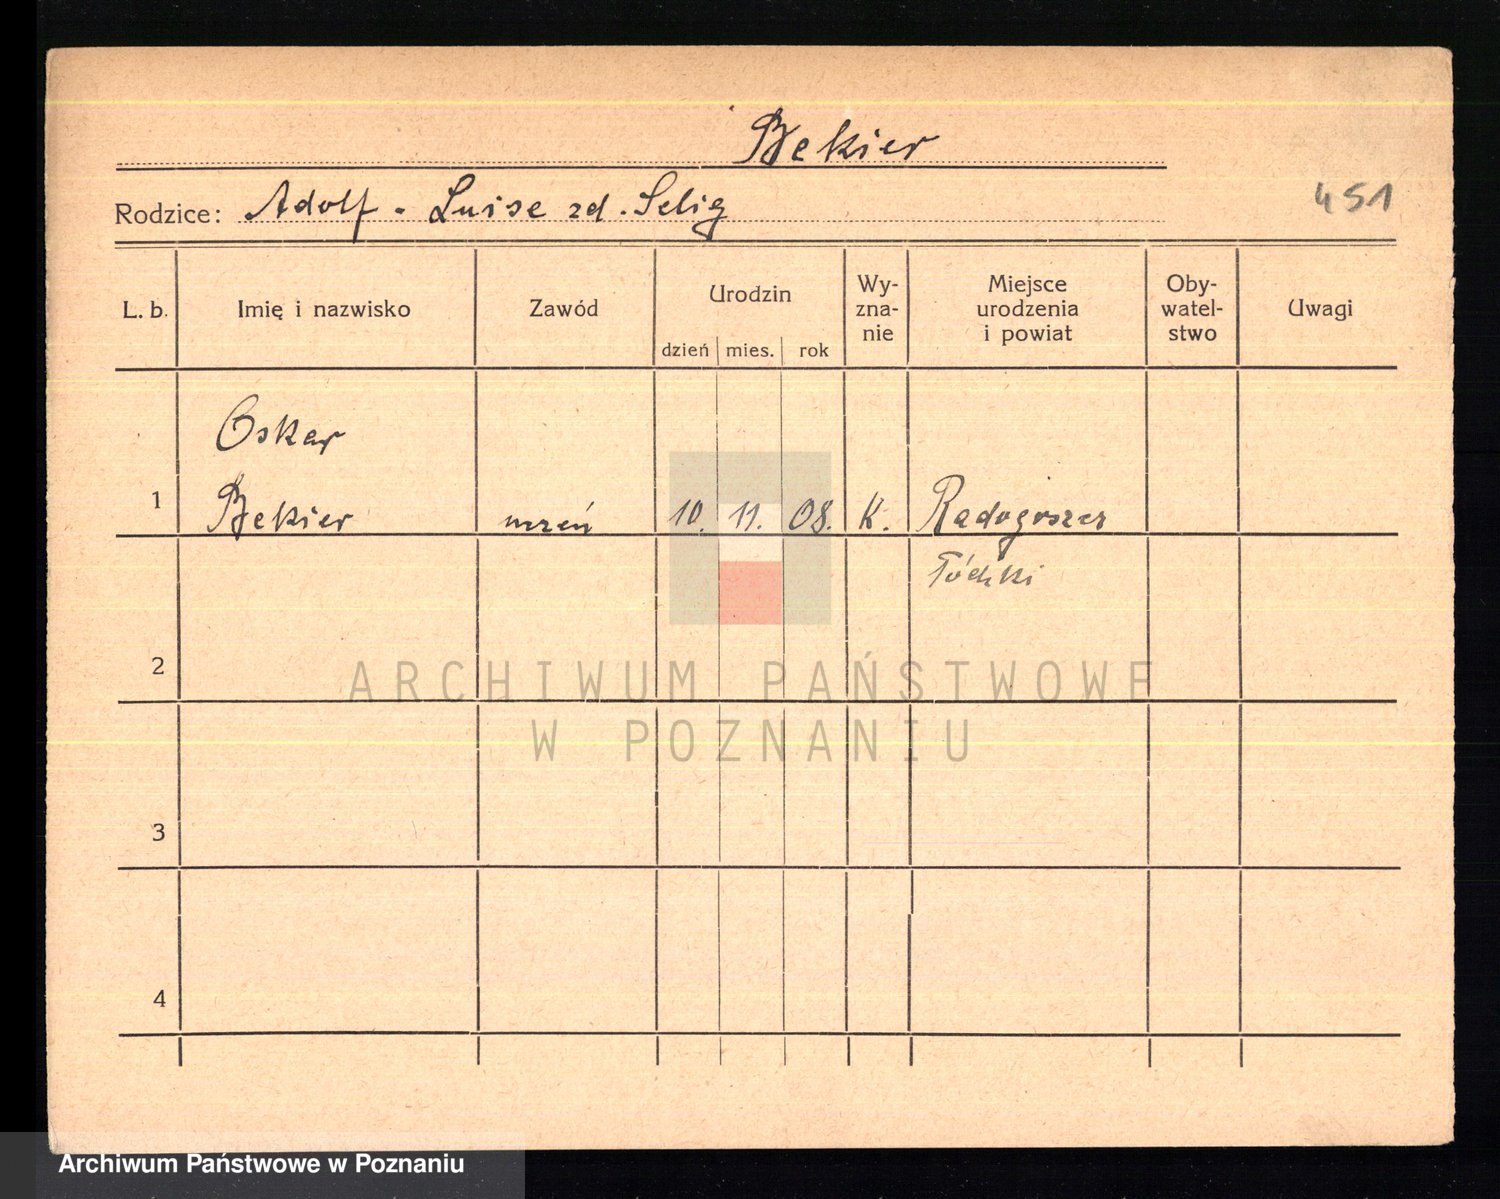 Bekier
Rodzice: Adolf - Luise zd. Selig
451
L. b. Imię i nazwisko Zawód Urodzin dzień mies. rok Wy-zna-nie Miejsce urodzenia i powiat Oby-watel-stwo Uwagi
Oskar
1 Bekier uczeń 10. 11. 08. K. Radogoszcz
Łódzki
2
ARCHIWUM PAŃSTWOWE
W POZNANIU
3
4
Archiwum Państwowe w Poznaniu